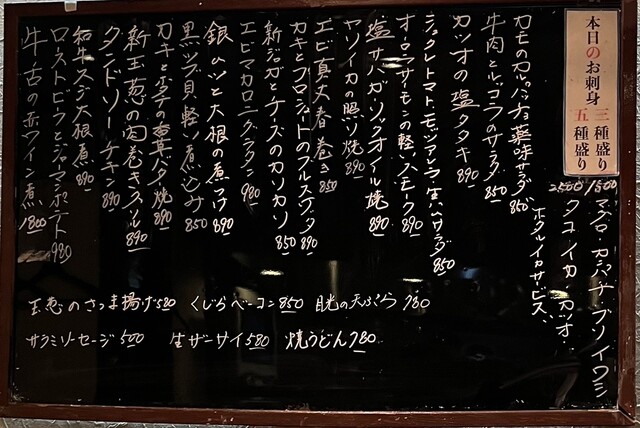 本日のお刺身 三種盛り 五種盛り
1500
2500
マグロ・カンパチ・ブリ・イワシ
タコ・イカ・カツオ
ホタルイカサービス、
カモのカルパッチョ薬味サラダ 850
牛肉とルッコラのサラダ 850
カツオの塩タタキ 890
フルーツトマト・モッツァレラ・生ハムサラダ 850
オーロラサーモンの軽いスモーク 890
塩サバガーリックオイル焼 890
ヤリイカの照り焼 890
エビ真丈春巻き 850
カキとプロシュートのブルスケッタ 890
新ジャガとチーズのカリカリ 850
エビマカロニグラタン 980
銀ムツと大根の煮つけ 890
黒ツブ貝軽い煮込み 850
カキとホタテの香草バタ焼 890
新玉葱の肉巻きフライ 890
タンドリーチキン 890
和牛スジ大根煮 890
ローストビーフとジャーマンポテト 980
牛舌の赤ワイン煮 1800
玉葱のさつま揚げ 580 くじらベーコン 850 目光の天ぷら 780
サラミソーセージ 500 生ザーサイ 580 焼うどん 780